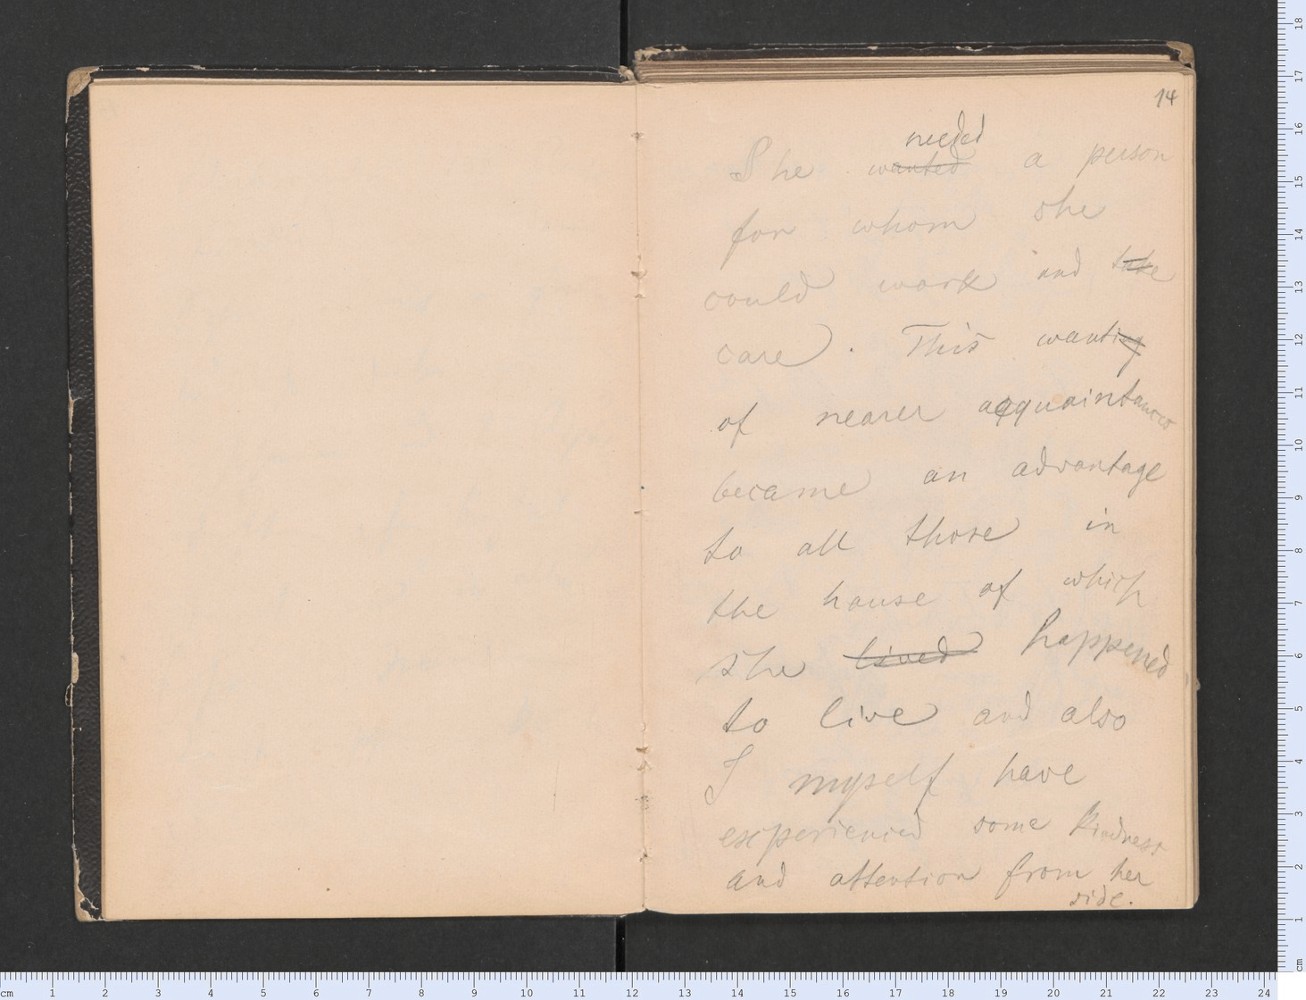 14
needed
She wanted a person
for whom she
could work and take
care. This wanting
of nearer acquaintances
became an advantage
to all those in
the house of which
she lived happened
to live and also
I myself have
experienced some kindness
and attention from her
side.